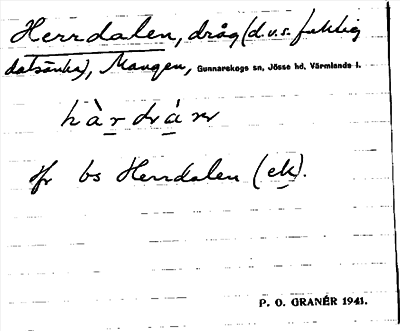 Herrdalen, dråg (d.v.s. fuktig
dalsänka), Mangen, Gunnarskogs sn, Jösse hd, Värmlands l.
jfr bs Herrdalen (ek).
P. O. GRANÉR 1941.